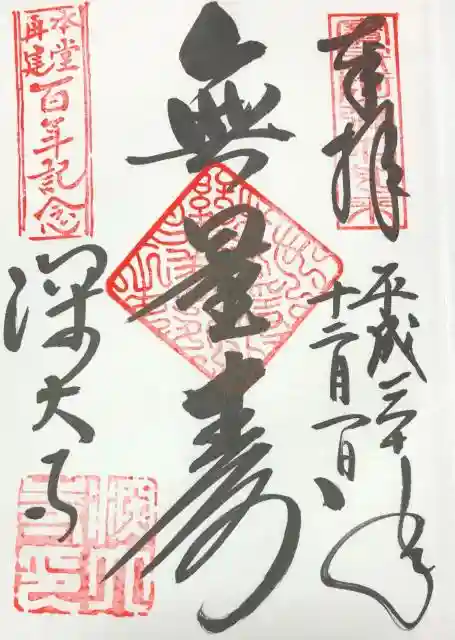 奉拝
平成三十年
十二月一日
無量寿
本堂
再建
百年記念
深大寺